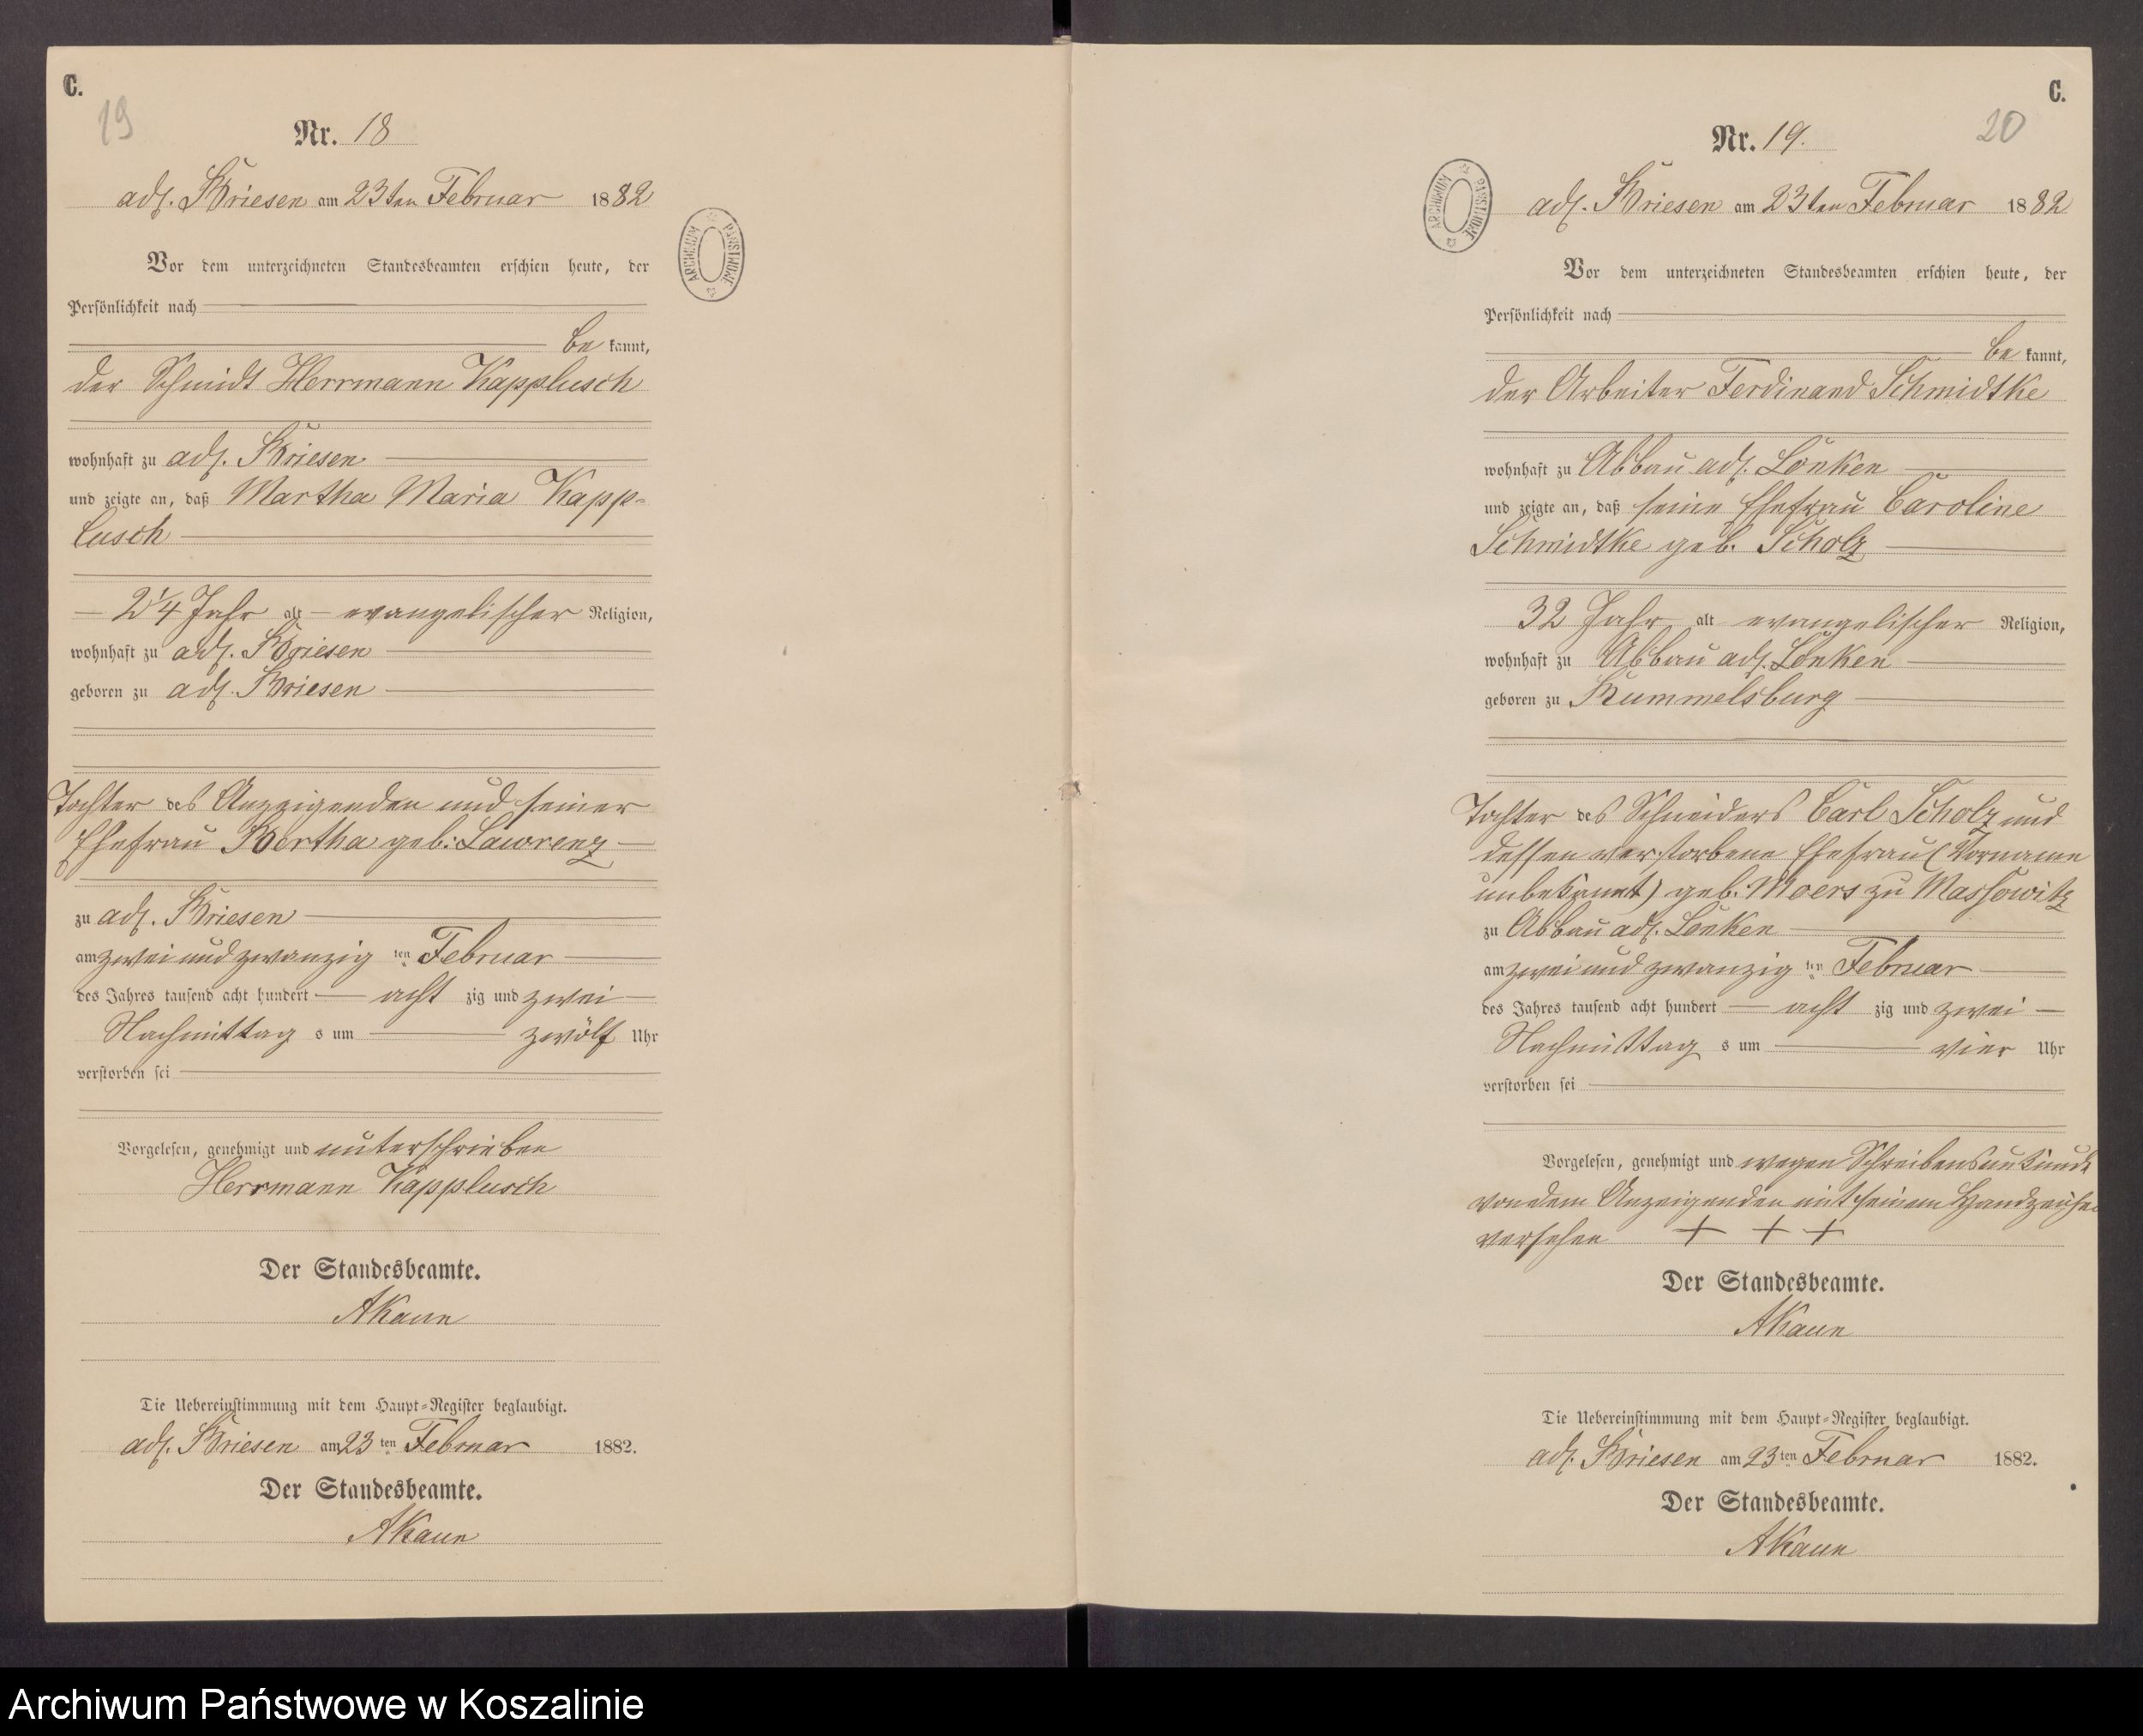 C.
19
Nr. 18
adl. Briesen am 23ten Februar 1882
Vor dem unterzeichneten Standesbeamten erschien heute, der
Persönlichkeit nach
be kannt,
der Schmidt Herrmann Kapplusch
wohnhaft zu adl. Briesen
und zeigte an, daß Martha Maria Kapp-
lusch
2 1/4 Jahr alt evangelischer Religion,
wohnhaft zu adl. Briesen
geboren zu adl. Briesen
Tochter des Anzeigenden und seiner
Ehefrau Bertha geb. Lawrenz
zu adl. Briesen
am zwei und zwanzig ten Februar
des Jahres tausend acht hundert acht zig und zwei
Nachmittag s um zwölf Uhr
verstorben sei
Vorgelesen, genehmigt und unterschrieben
Herrmann Kapplusch
Der Standesbeamte.
AKaun
Die Uebereinstimmung mit dem Haupt-Register beglaubigt.
adl. Briesen am 23 ten Februar 1882.
Der Standesbeamte.
AKaun
ARCHIWUM PAŃSTWOWE
C.
20
Nr. 19.
ARCHIWUM PAŃSTWOWE
adl. Briesen am 23ten Februar 1882
Vor dem unterzeichneten Standesbeamten erschien heute, der
Persönlichkeit nach
be kannt,
der Arbeiter Ferdinand Schmidtke
wohnhaft zu Abbau adl. Lonken
und zeigte an, daß seine Ehefrau Caroline
Schmidtke geb. Scholz
32 Jahr alt evangelischer Religion,
wohnhaft zu Abbau adl. Lonken
geboren zu Rummelsburg
Tochter des Schneiders Carl Scholz und
dessen verstorbene Ehefrau (Vorname
unbekannt) geb. Moers zu Massowitz
zu Abbau adl. Lonken
am zwei und zwanzig ten Februar
des Jahres tausend acht hundert acht zig und zwei
Nachmittag s um vier Uhr
verstorben sei
Vorgelesen, genehmigt und wegen Schreibensunkunde
von dem Anzeigenden mit seinem Handzeichen
versehen + + +
Der Standesbeamte.
AKaun
Die Uebereinstimmung mit dem Haupt-Register beglaubigt.
adl. Briesen am 23 ten Februar 1882.
Der Standesbeamte.
AKaun
Archiwum Państwowe w Koszalinie